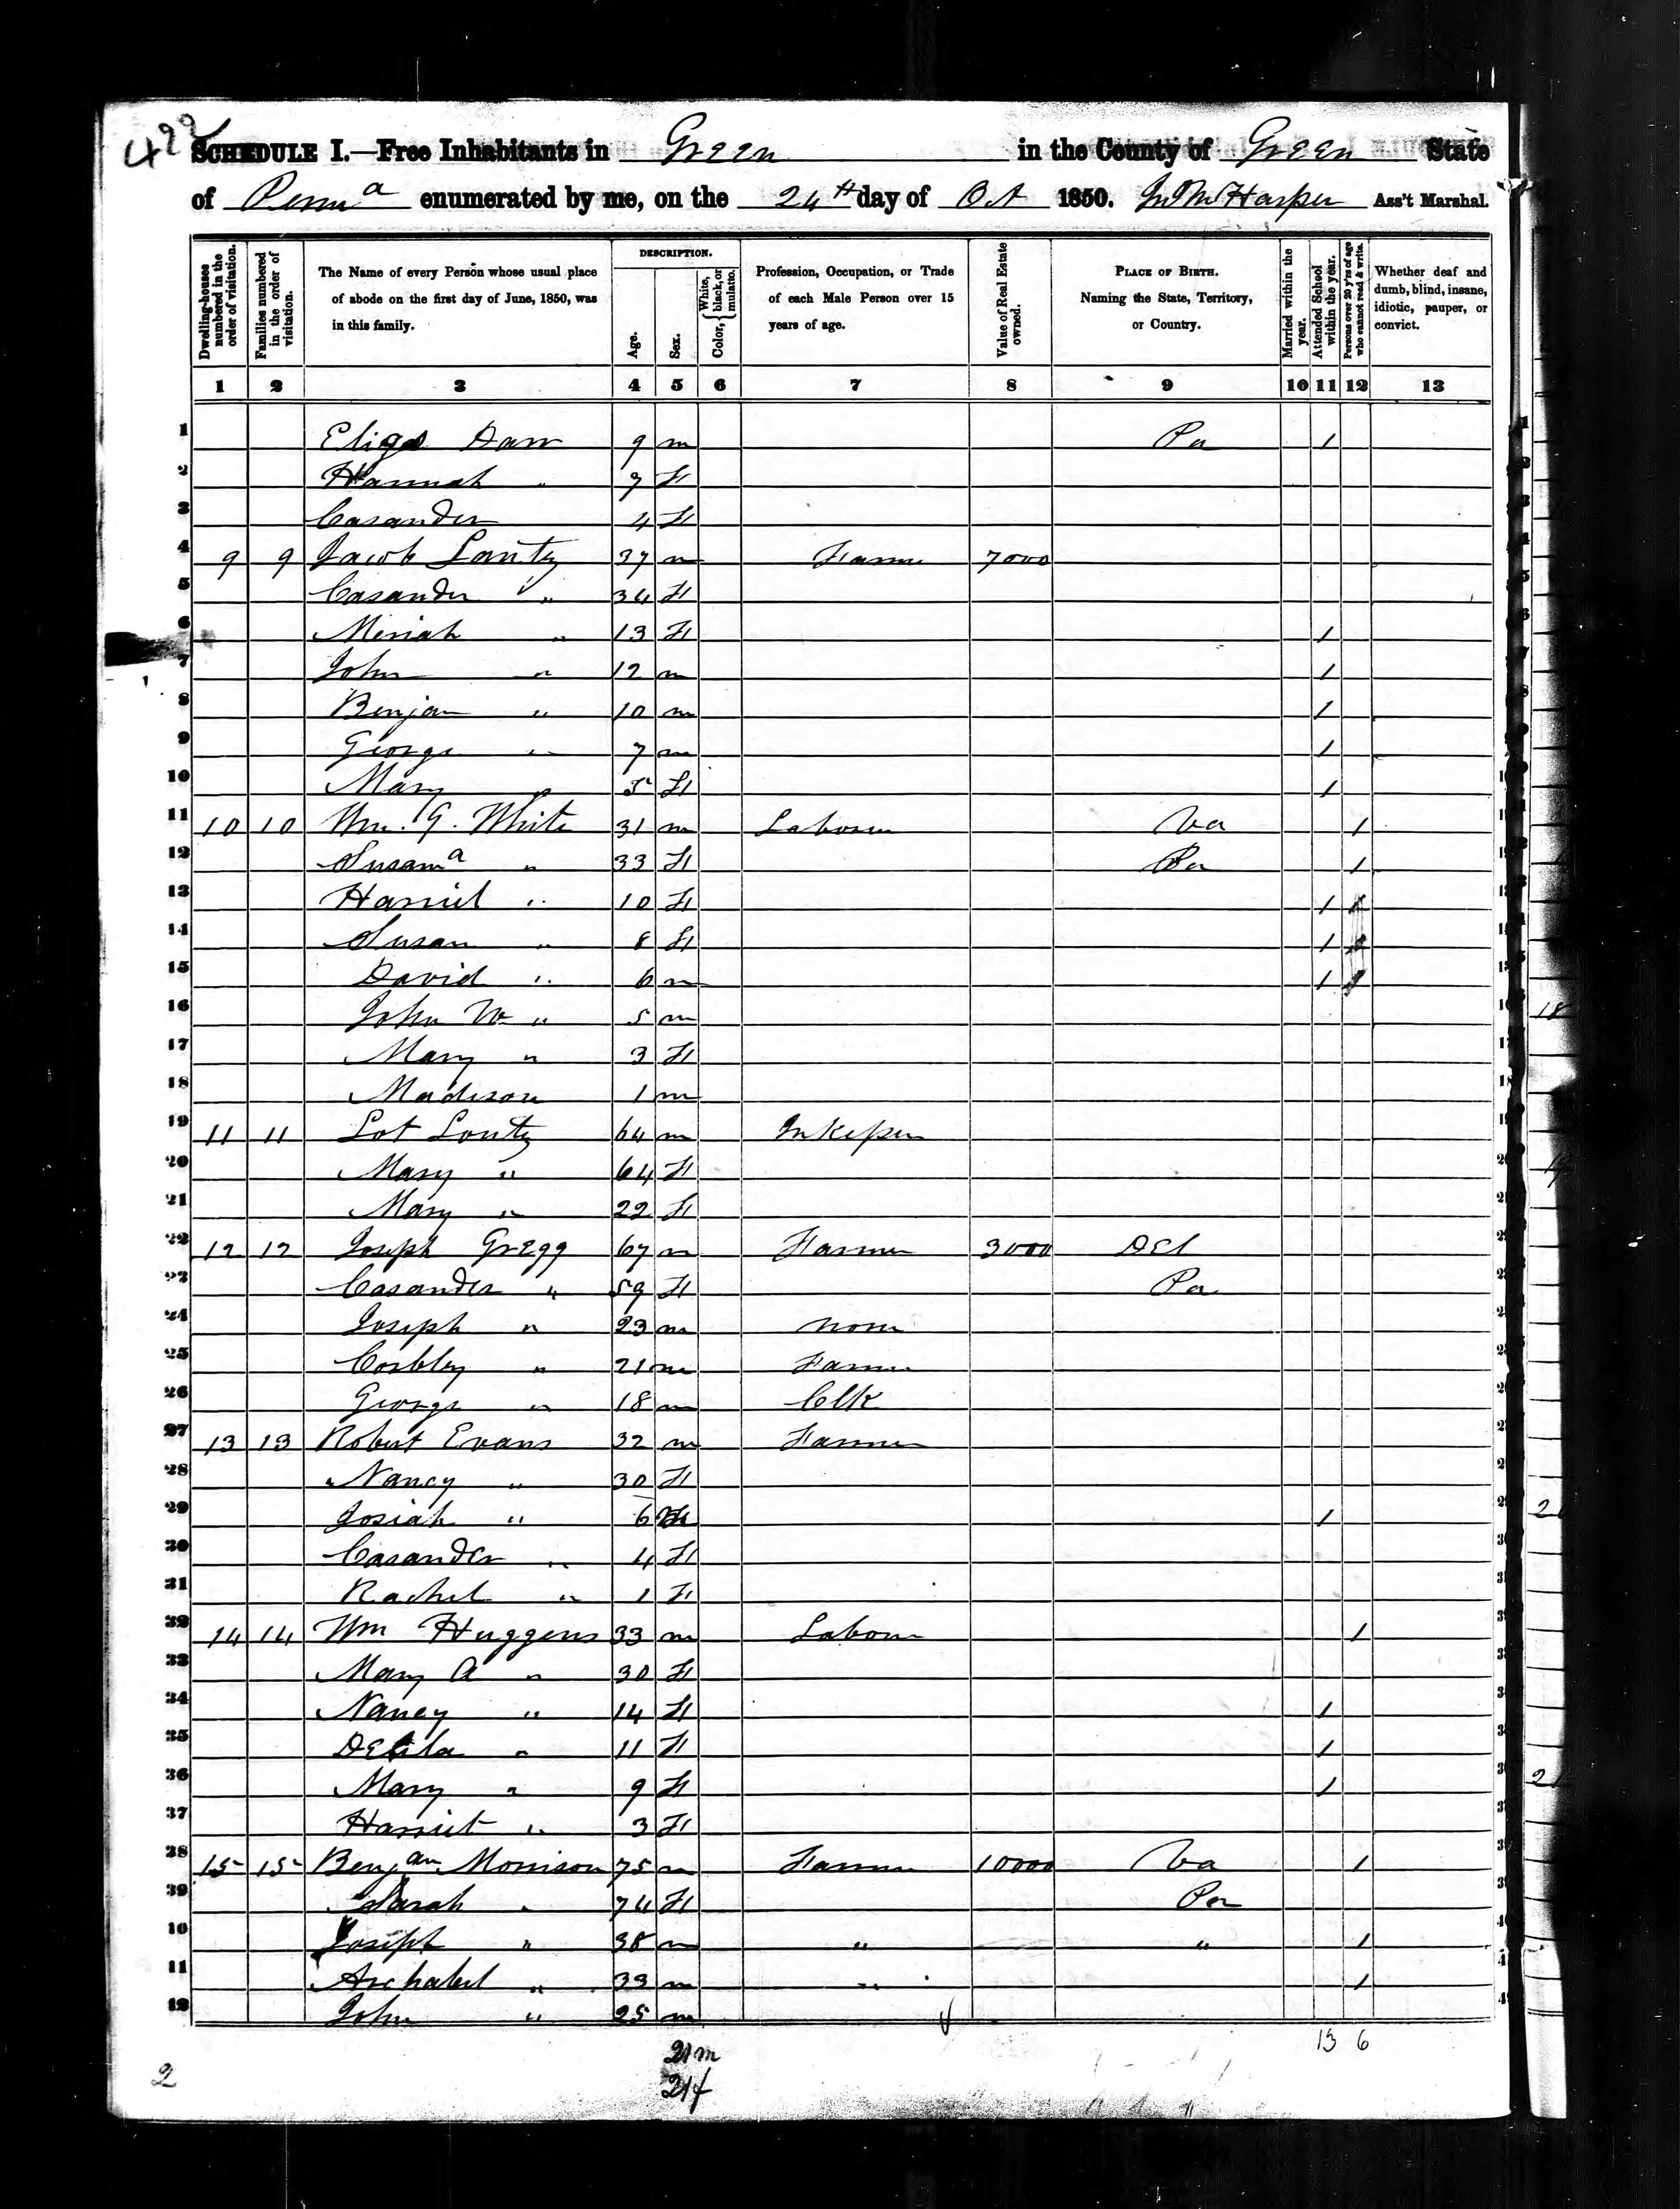 422
SCHEDULE I.—Free Inhabitants in Green in the County of Green State
of Penna enumerated by me, on the 24th day of Oct 1850. Jno Mc Harper Ass't Marshal.
Dwelling-houses numbered in the order of visitation.
Families numbered in the order of visitation.
The Name of every Person whose usual place of abode on the first day of June, 1850, was in this family.
DESCRIPTION.
Age.
Sex.
Color, { White, black, or mulatto.
Profession, Occupation, or Trade of each Male Person over 15 years of age.
Value of Real Estate owned.
PLACE OF BIRTH. Naming the State, Territory, or Country.
Married within the year.
Attended School within the year.
Persons over 20 y'rs of age who cannot read & write.
Whether deaf and dumb, blind, insane, idiotic, pauper, or convict.
1 2 3 4 5 6 7 8 9 10 11 12 13
1 9 m Pa /
2 Hannah " 7 F
3 Casander 4 F
4 9 9 Jacob Lantz 37 m Farmer 7000
5 Casander " 34 F
6 Meriah " 13 F /
7 John " 12 m /
8 Benjan " 10 m /
9 George " 7 m /
10 Mary " 5 F /
11 10 10 Wm. G. White 31 m Laborer Va /
12 Susana " 33 F Pa /
13 Harriet " 10 F / /
14 Susan " 8 F / /
15 David " 6 m / /
16 John W " 5 m
17 Mary " 3 F
18 Madison 1 m
19 11 11 Lot Lantz 64 m Inkeper
20 Mary " 64 F
21 Mary " 22 F
22 12 12 Joseph Gregg 67 m Farmer 3000 Del
23 Casander " 59 F Pa
24 Joseph " 23 m None
25 Corbley " 21 m Farmer
26 George " 18 m Clk
27 13 13 Robert Evans 32 m Farmer
28 Nancy " 30 F
29 Josiah " 6 m /
30 Casander " 4 F
31 Rachel " 1 F
32 14 14 Wm Huggens 33 m Labour /
33 Mary A " 30 F
34 Nancy " 14 F /
35 Delila " 11 F /
36 Mary " 9 F /
37 Harriet " 3 F
38 15 15 Benjan Morrison 75 m Farmer 10000 Va /
39 Sarah " 74 F Pa
40 Joseph " 38 m " " /
41 Archabel " 33 m " /
42 John " 25 m
13 6
21 m
21 f
2